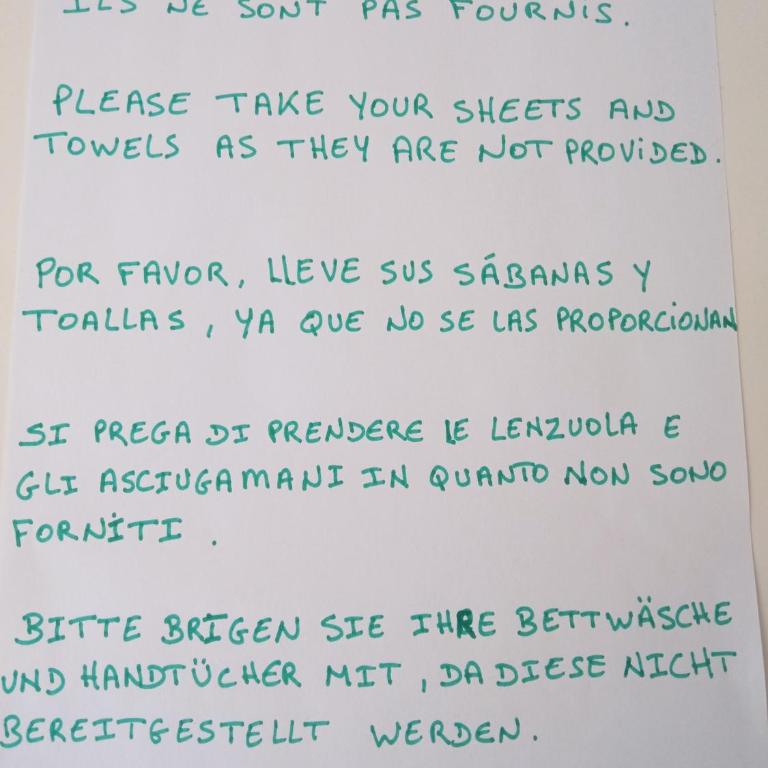 ILS NE SONT PAS FOURNIS.
PLEASE TAKE YOUR SHEETS AND
TOWELS AS THEY ARE NOT PROVIDED.
POR FAVOR, LLEVE SUS SÁBANAS Y
TOALLAS, YA QUE NO SE LAS PROPORCIONAN
SI PREGA DI PRENDERE LE LENZUOLA E
GLI ASCIUGAMANI IN QUANTO NON SONO
FORNITI.
BITTE BRIGEN SIE IHRE BETTWÄSCHE
UND HANDTÜCHER MIT, DA DIESE NICHT
BEREITGESTELLT WERDEN.